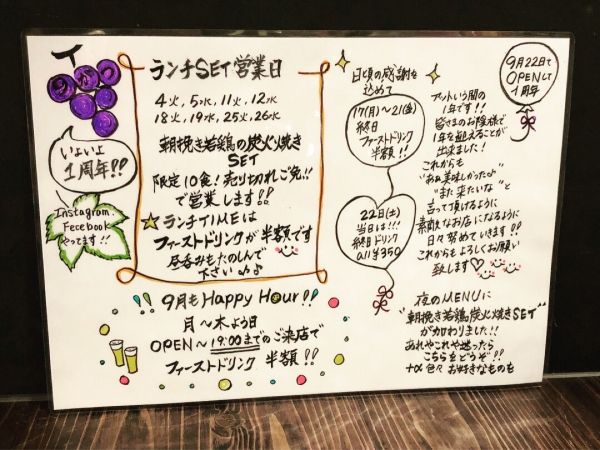 9がつ
いよいよ
1周年!!
Instagram
Fecebook
やってます!!
ランチSET営業日
4火, 5水, 11火, 12水
18火, 19水, 25火, 26水
朝挽き若鶏の炭火焼き
SET
限定10食!売り切れご免!!
で営業します!!
☆ランチTIMEは
ファーストドリンクが半額です
昼呑みもたのしんで
下さい♪♪
!!9月もHappy Hour!!
月〜木よう日
OPEN〜19:00までのご来店で
ファーストドリンク 半額!!
日頃の感謝を
込めて
17(月)〜21(金)
終日
ファーストドリンク
半額!!
22日(土)
当日は!!!
終日ドリンク
all ¥350
9月22日で
OPENして
1周年
アットいう間の
1年です!!
皆さまのお陰様で
1年を迎えることが
出来ました!
これからも
"あぁ美味しかった♪"
"また来たいな"と
言って頂けるように
素敵なお店になるように
日々努めていきます!!
これからもよろしくお願い
致します♡
夜のMENUに
"朝挽き若鶏炭火焼きSET"
が加わりました!!
あれやこれや迷ったら
こちらをどうぞ!!
+α色々お好きなものも